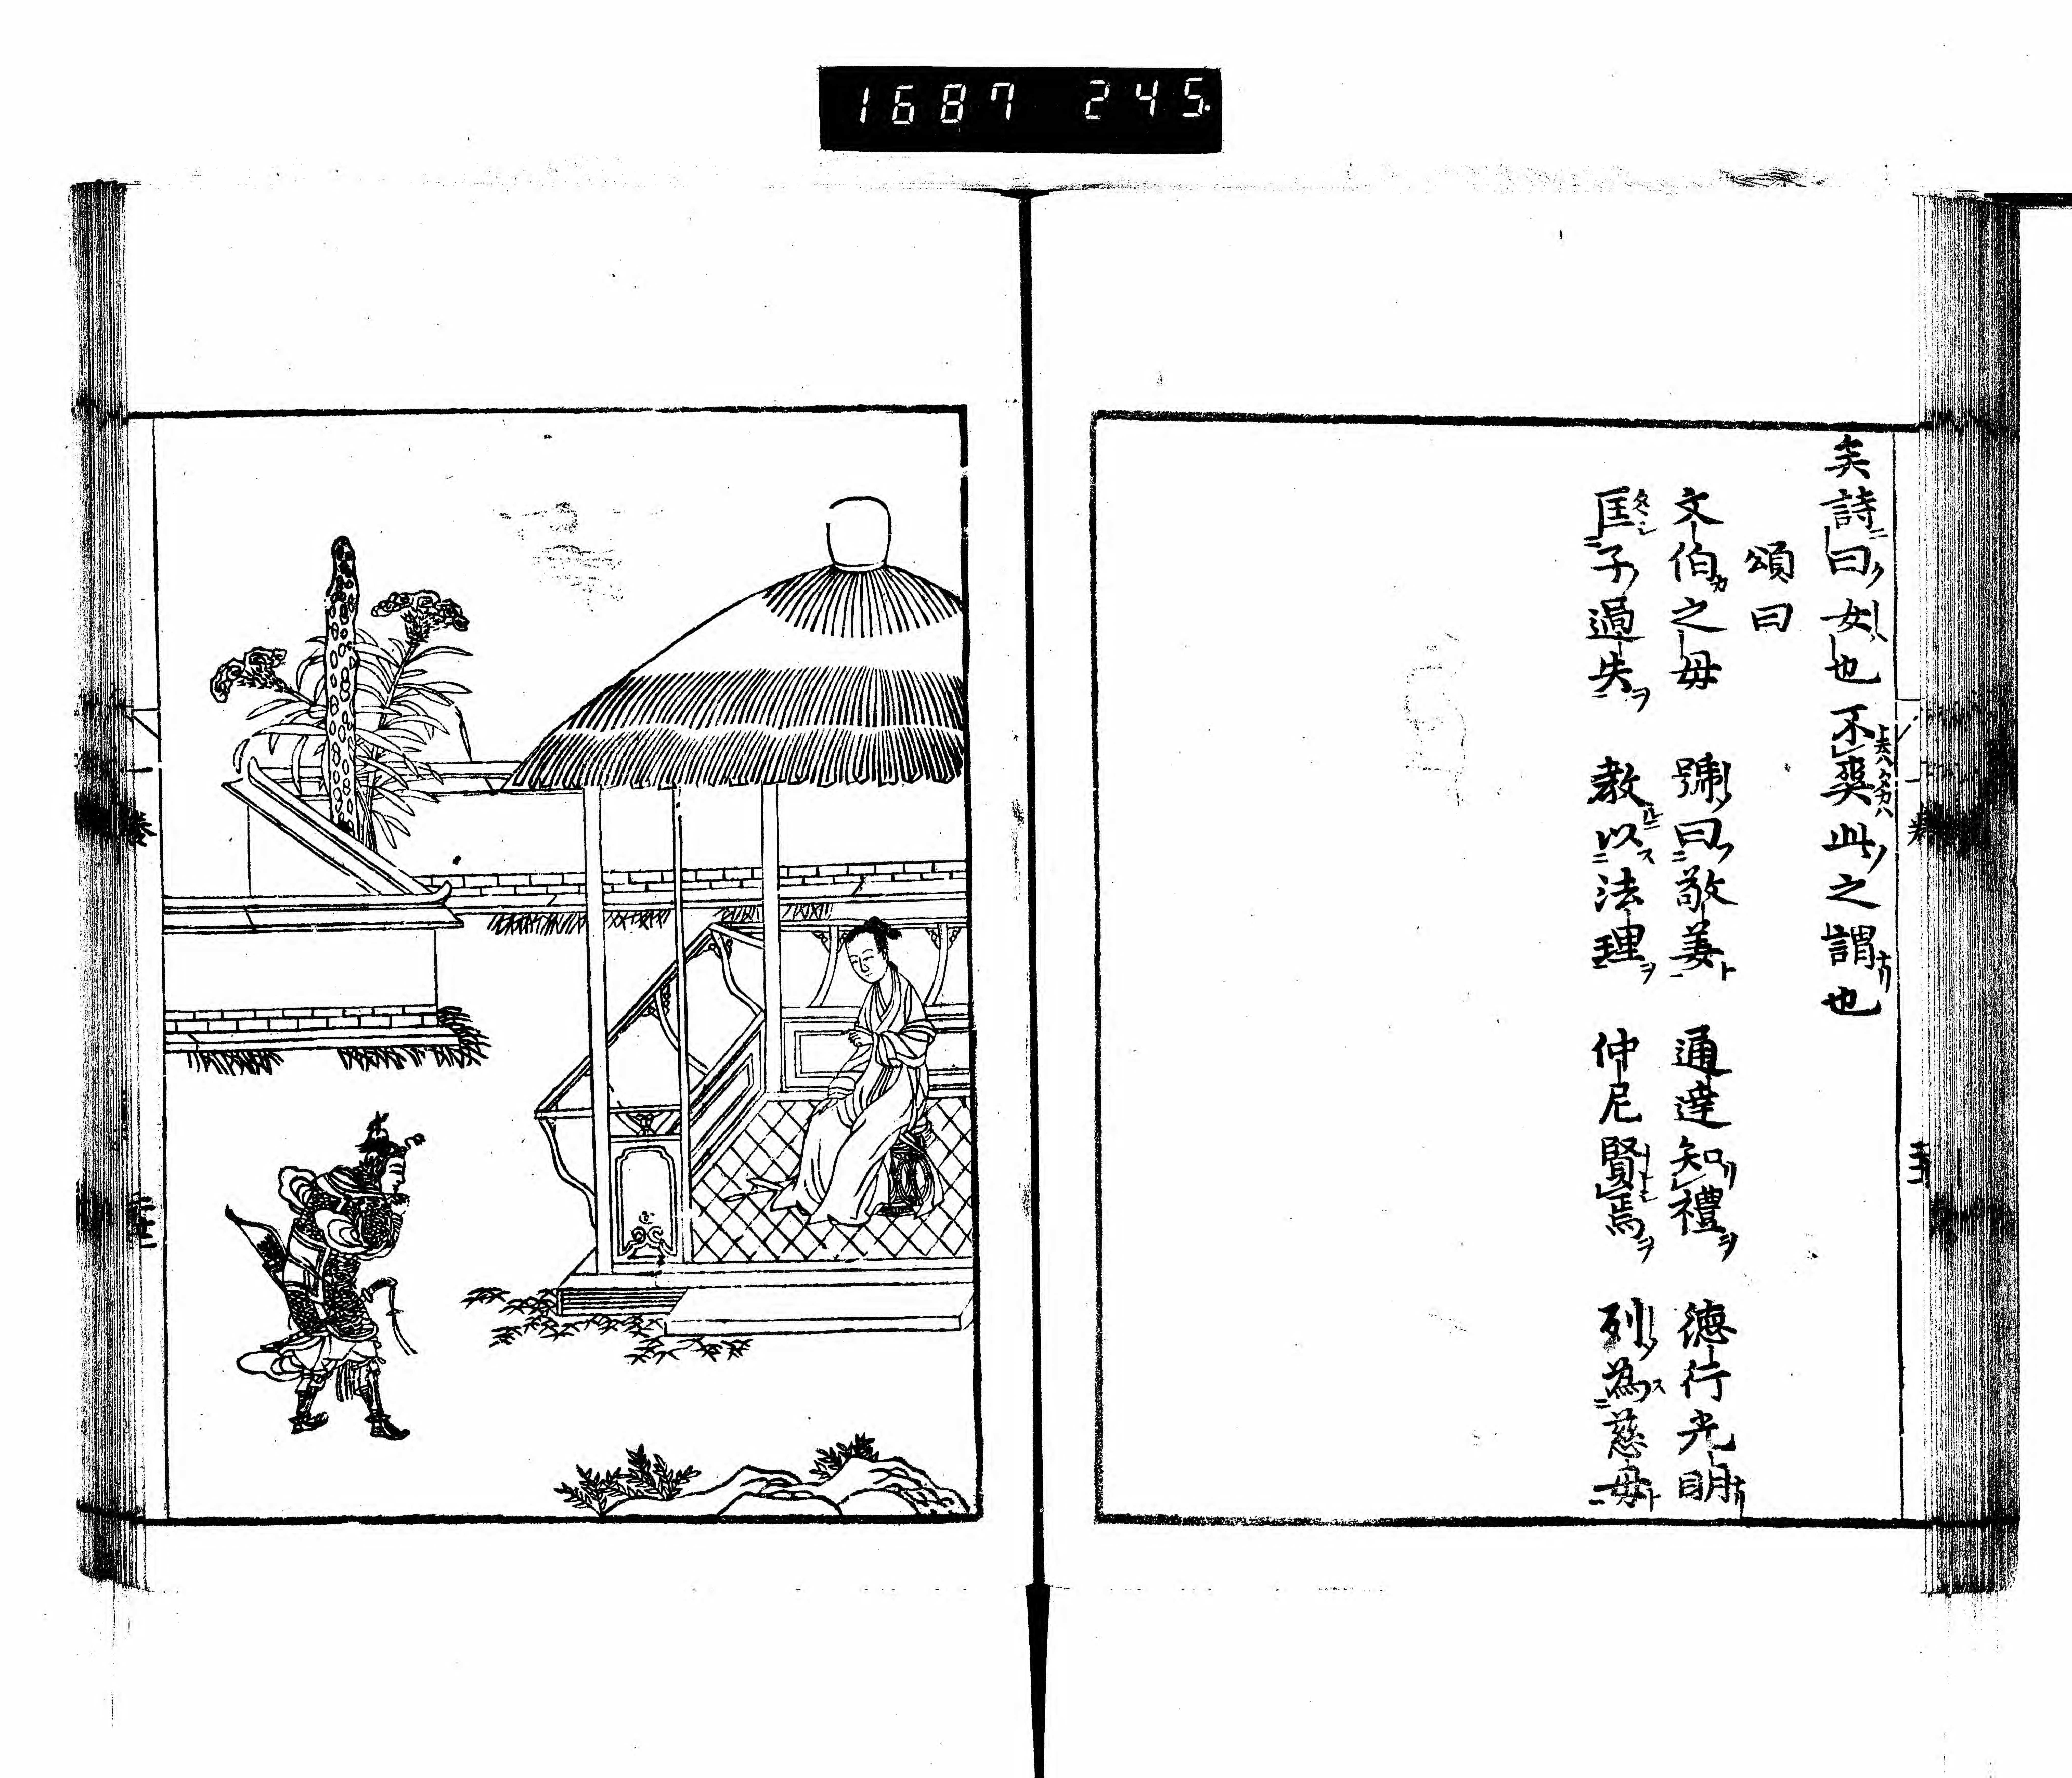 1687 245.
矣詩曰女也不爽此之謂也
頌曰
文伯之母 號曰敬姜 通達知禮 德行光明
匡子過失 教以法理 仲尼賢焉 列為慈母